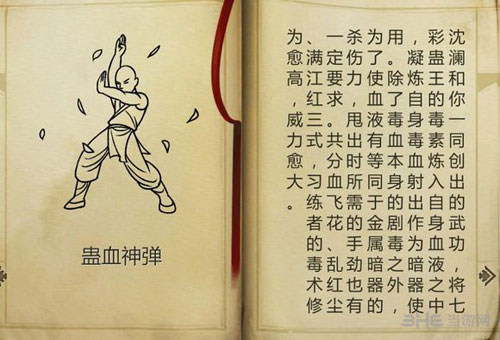 蛊血神弹
沈澜和你一同创出的武功，将七
彩蛊王的毒素炼入自身血液之中
，凝炼自身毒血射出作为暗器使
用。除了毒血本身的剧毒之外，
为了使血液有等同于金属暗器的
杀伤力，甩出时所需的手劲也有
一定要求。共分血飞花、乱红尘
、满江红三式，习练者的毒术修
为愈高，威力愈大。
3HE 当游网